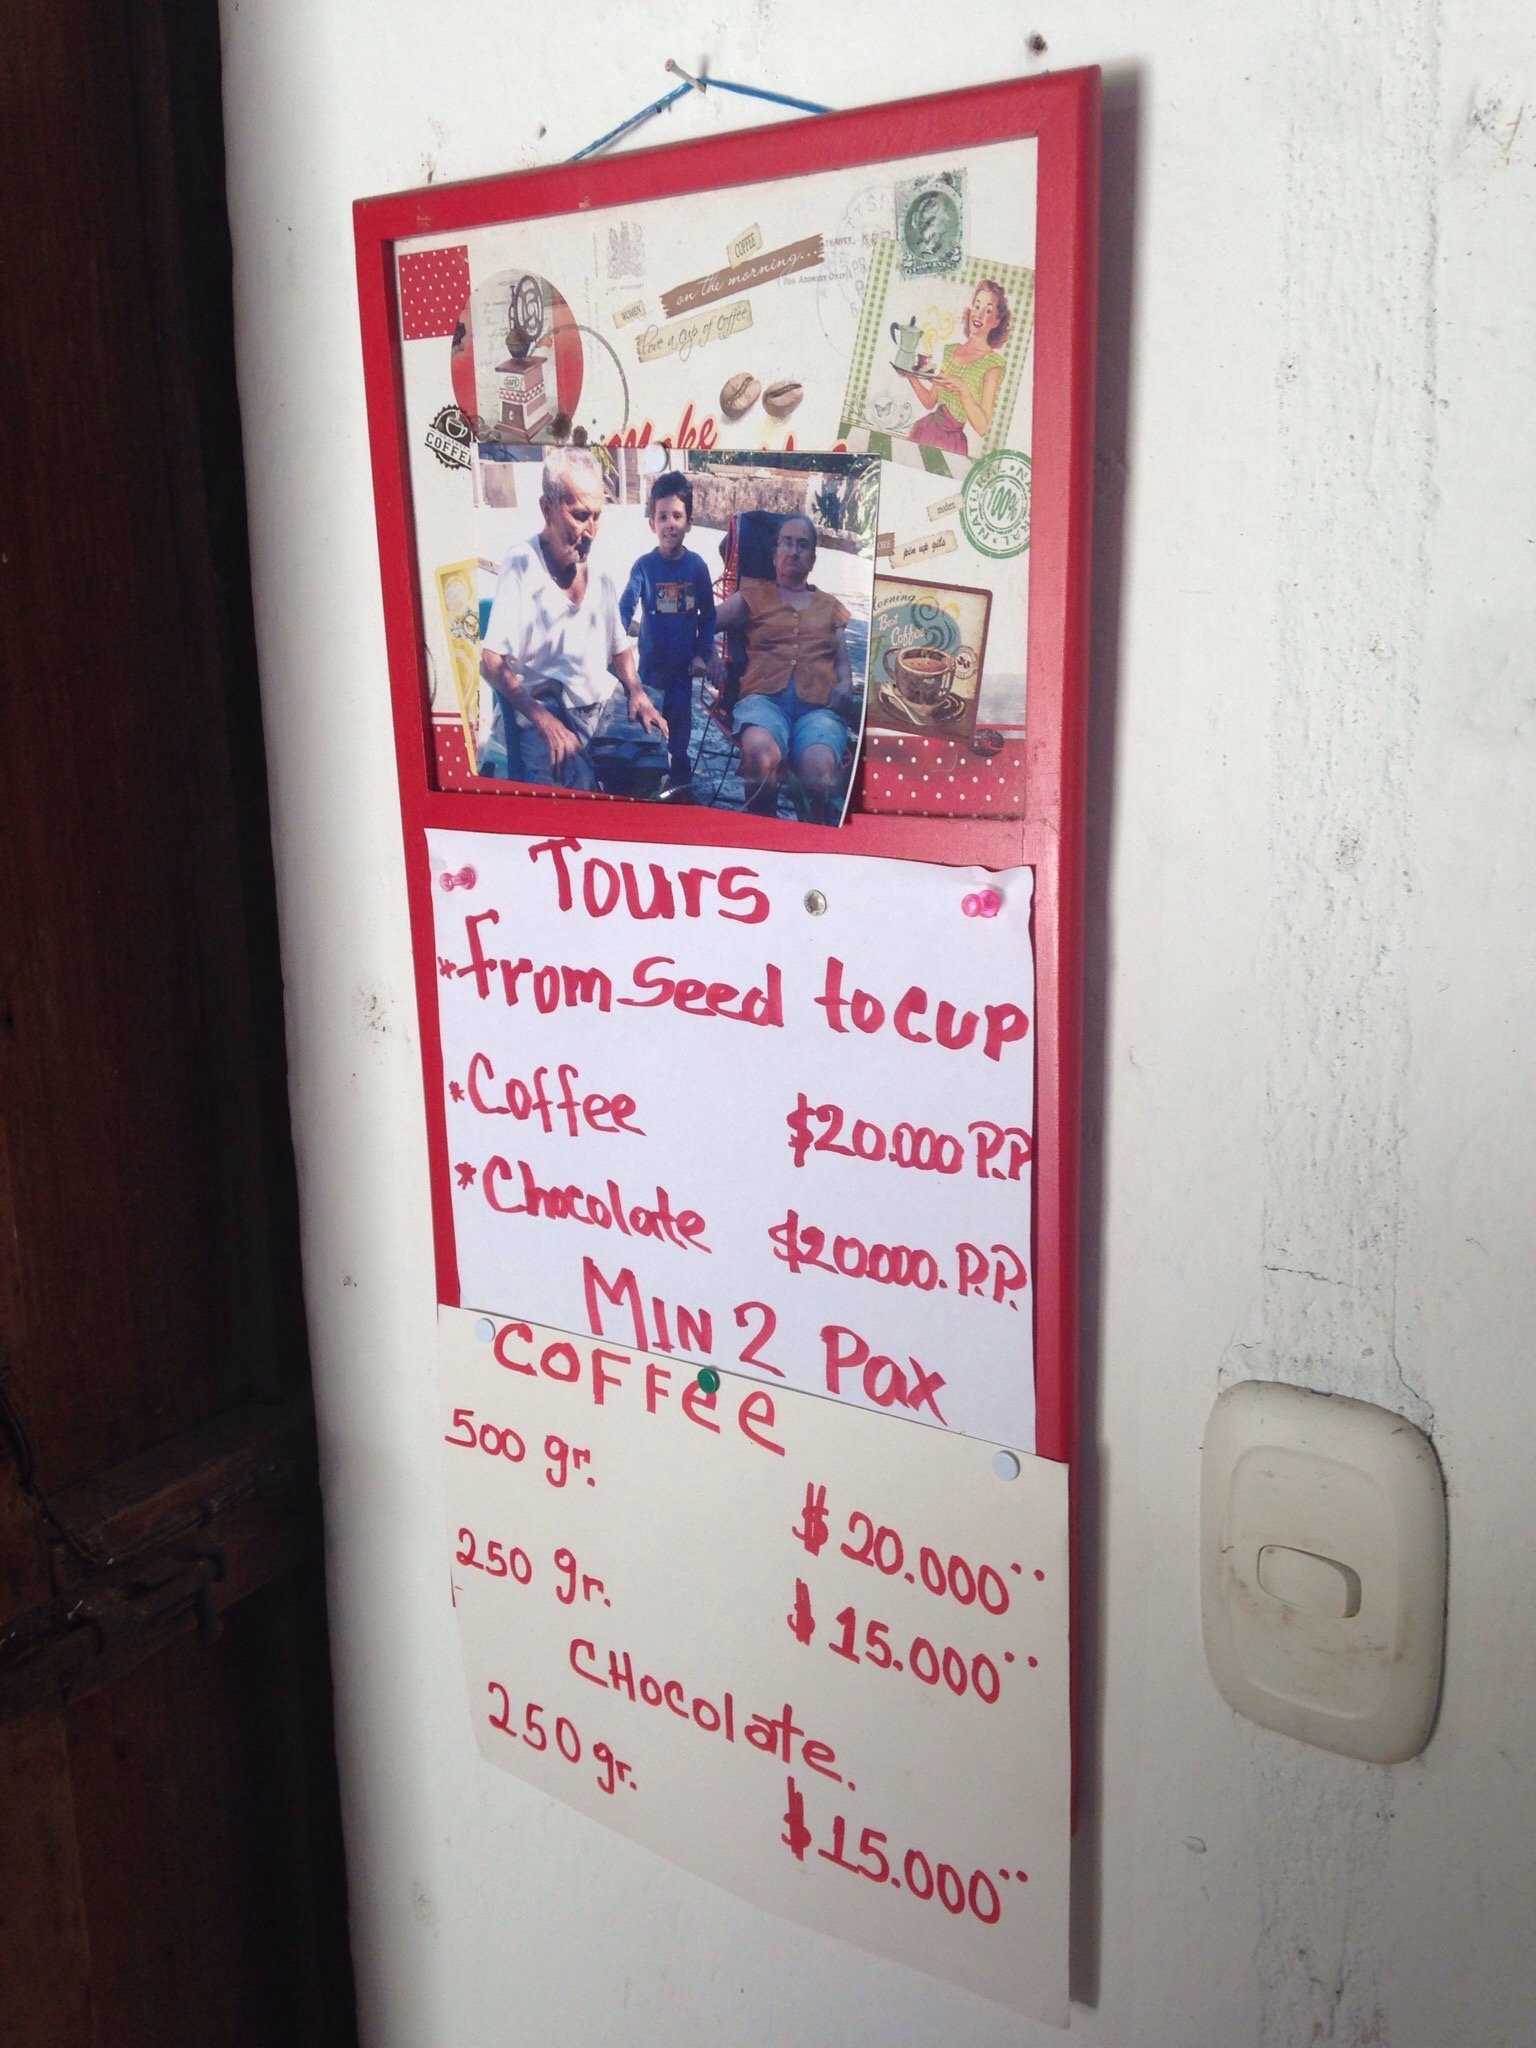 COFFEE
on the morning...
WOMEN
love a cup of coffee
CAFE
COFFEE
Make
NATURAL
100%
pin up gels
Morning
Best
Coffee
Tours
*From Seed to cup
*Coffee $20.000 P.P
*Chocolate $20.000. P.P.
MIN 2 Pax
COFFee
500 gr. $20.000¨
250 gr. $15.000¨
CHocolate.
250 gr. $15.000¨